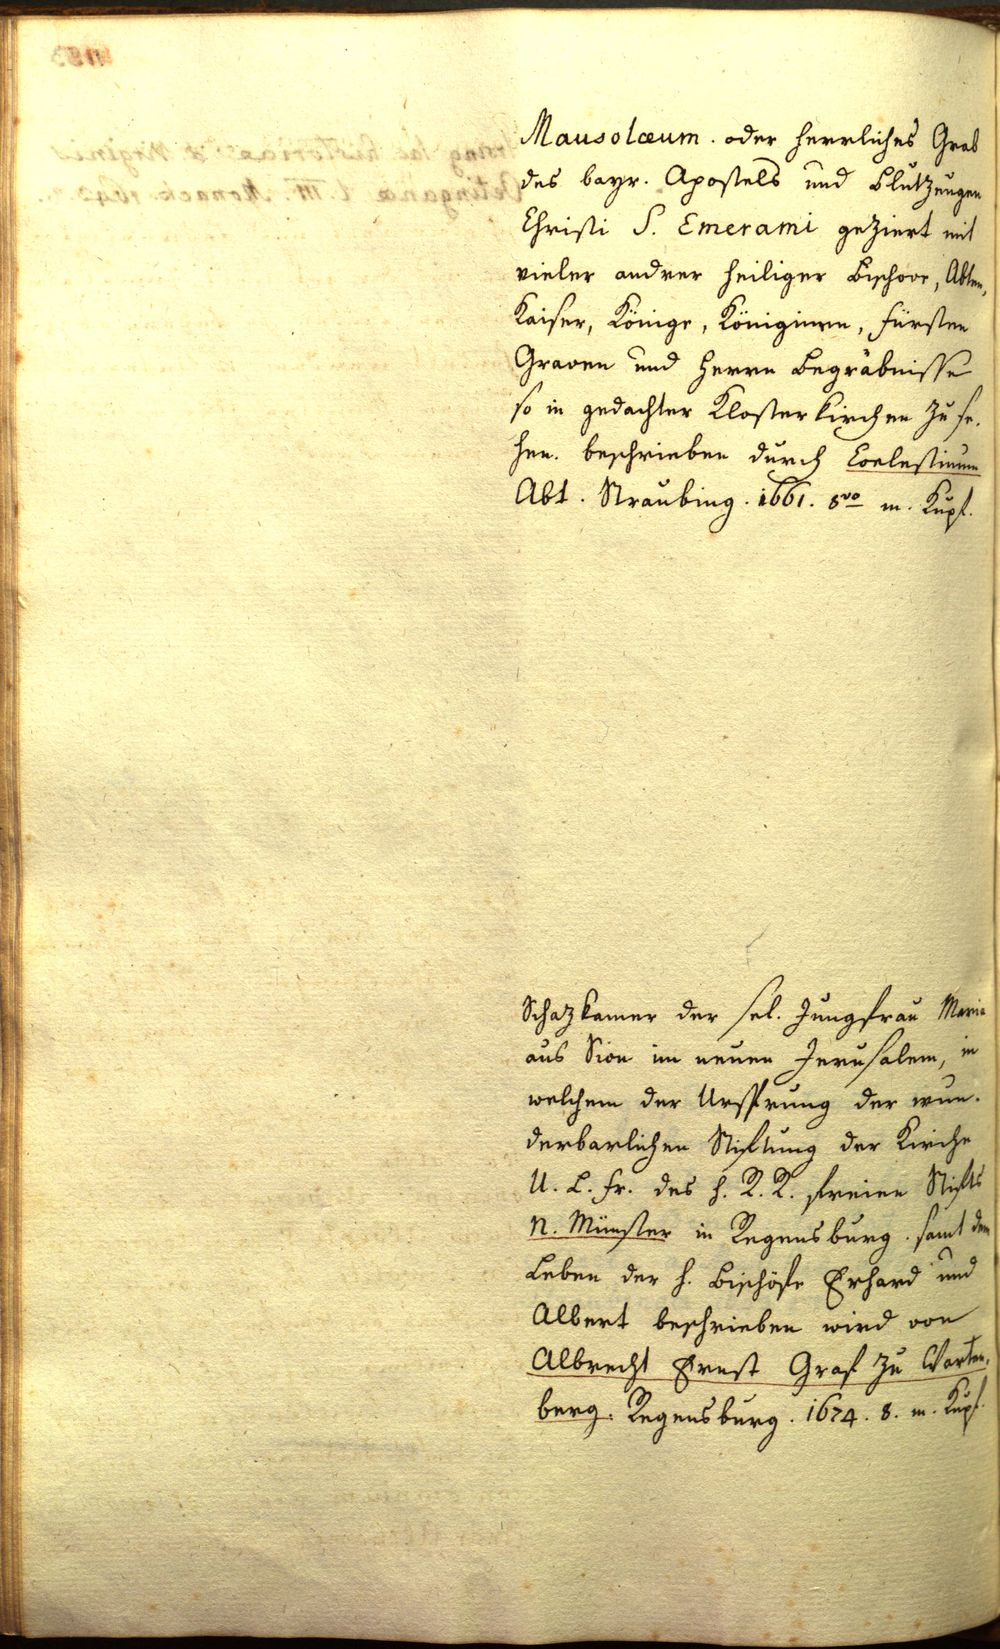 Mausolæum. oder herrliches Grab
des bayr. Apostels und Blutzeugen
Christi S. Emerami geziert mit
vieler andrer heiliger Bischove, Abten,
Kaiser, Könige, Königinnen, Fürsten
Graven und Herrn Begräbnisse
so in gedachter Klosterkirchen zu se-
hen. beschrieben durch Coelestinum
Abt. Straubing. 1661. 8vo m. Kupf.
Schazkamer der sel. Jungfrau Maria
aus Sion im neuen Jerusalem, in
welchem der Ursprung der wun-
derbarlichen Stiftung der Kirche
U. L. Fr. des h. R. R. freien Stifts
N. Münster in Regensburg. samt dem
Leben der h. Bischöfe Erhard und
Albert beschrieben wird von
Albrecht Ernst Graf zu Warten-
berg. Regensburg. 1674. 8. m. Kupf.